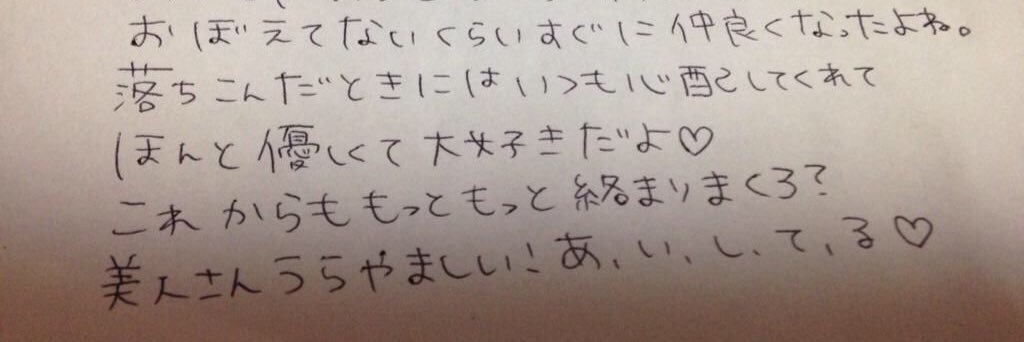 おぼえてないくらいすぐに仲良くなったよね。
落ちこんだときにはいつも心配してくれて
ほんと優しくて大好きだよ♡
これからももっともっと絡まりまくろ?
美人さんうらやましい!あ、い、し、て、る♡